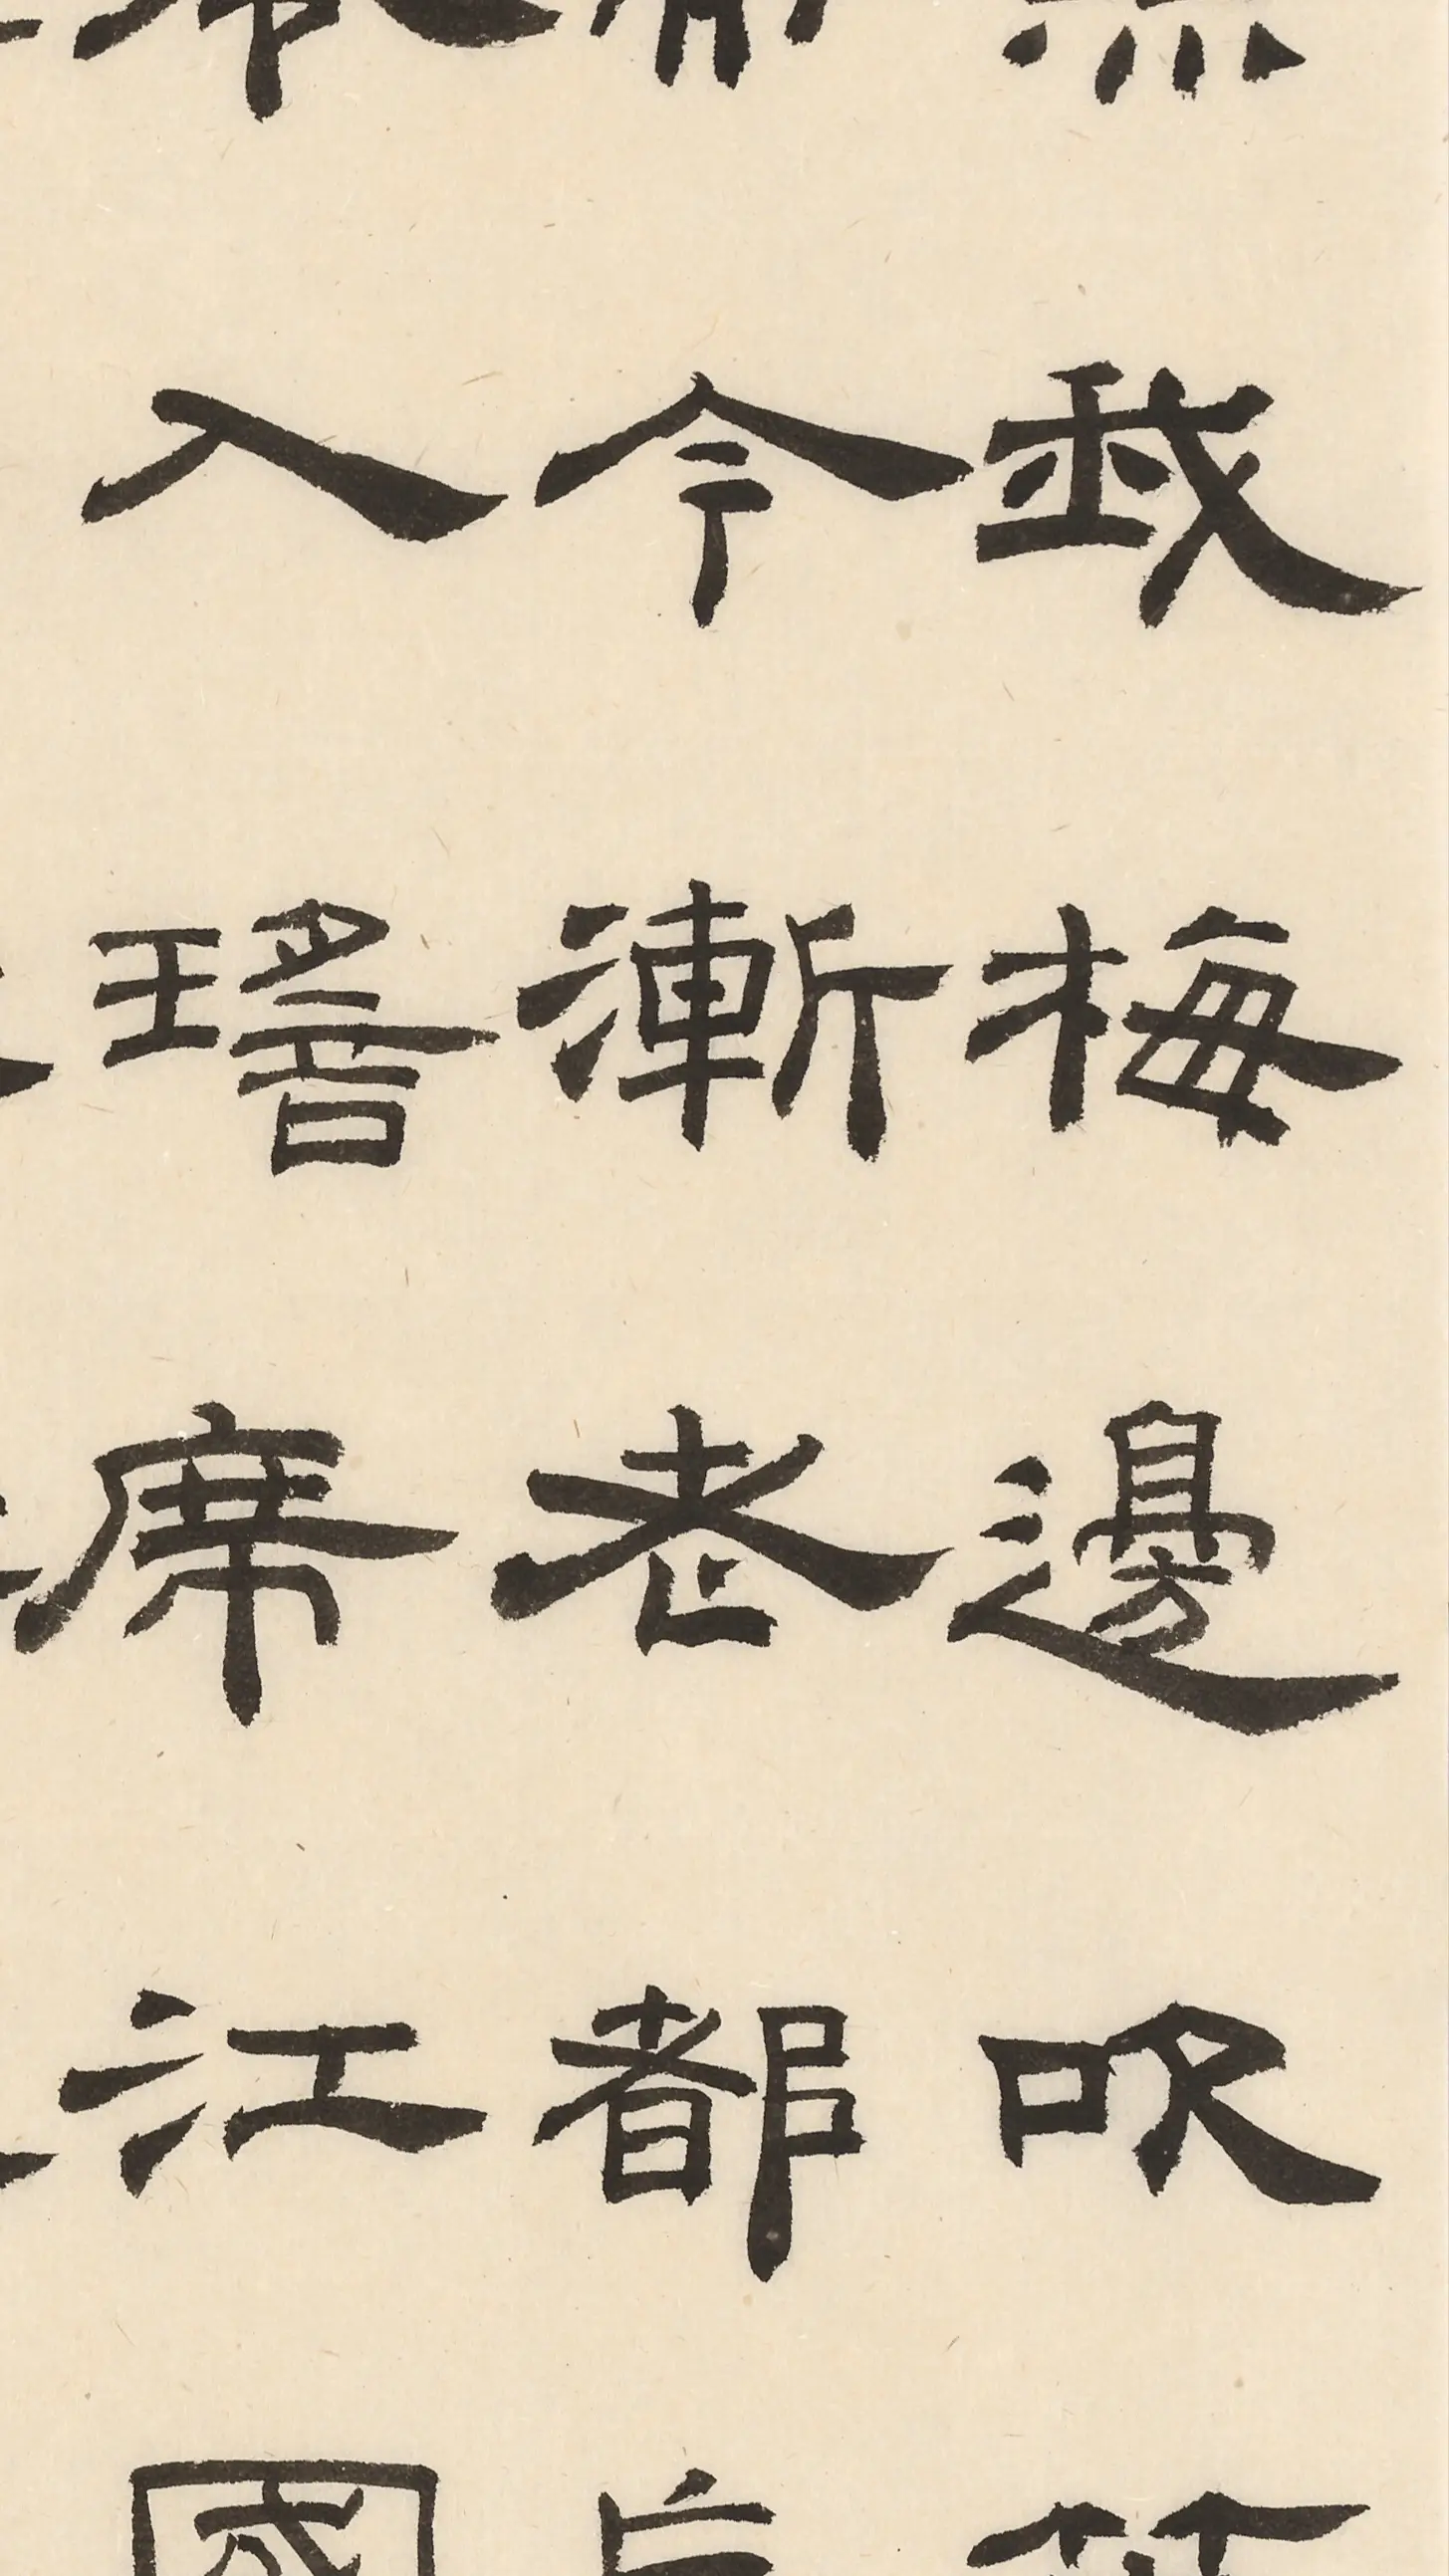 我梅邊吹
今漸老都
入瑤席江國